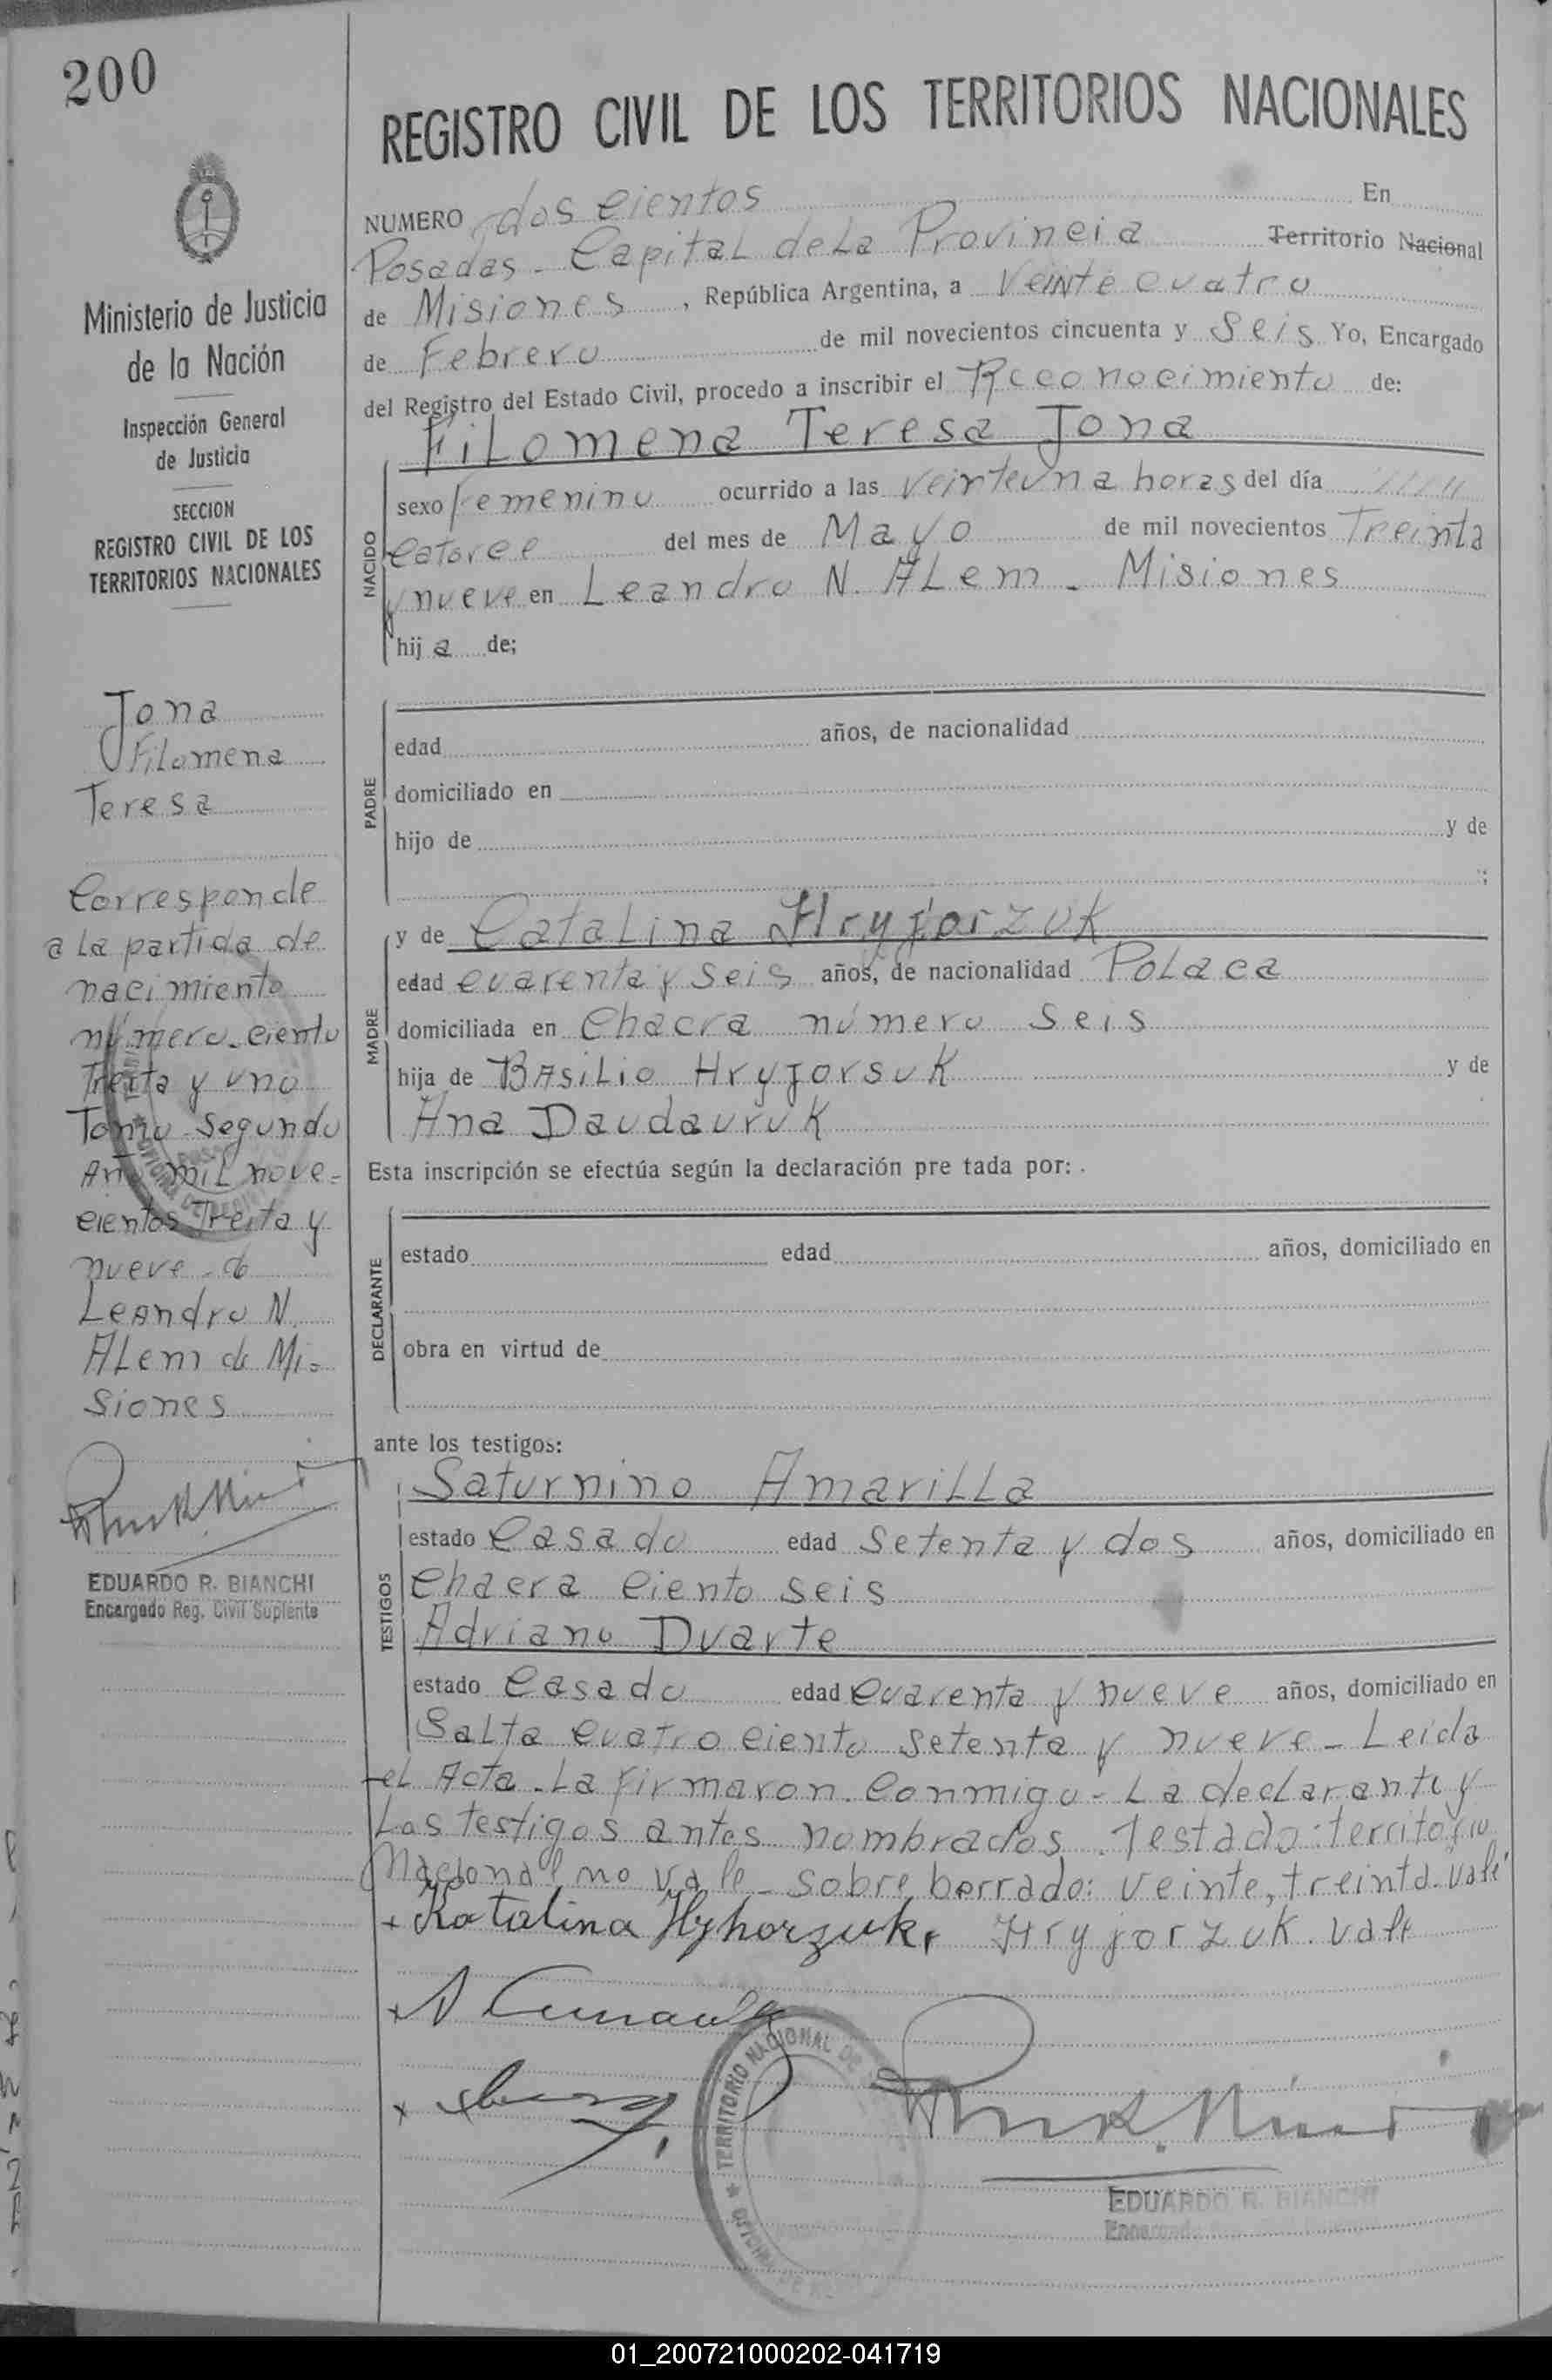 200
REGISTRO CIVIL DE LOS TERRITORIOS NACIONALES
Ministerio de Justicia
de la Nación
Inspección General
de Justicia
SECCION
REGISTRO CIVIL DE LOS
TERRITORIOS NACIONALES
Jona
Filomena
Teresa
Corresponde
a La partida de
nacimiento
número ciento
Treita y uno
Tomo Segundo
Año mil nove-
cientos Treita y
nueve - de
Leandro N.
ALem de Mi-
siones
EDUARDO R. BIANCHI
Encargado Reg. Civil Suplente
NUMERO dos cientos En
Posadas - Capital de La Provincia Territorio Nacional
de Misiones , República Argentina, a Veinte cuatro
de Febrero de mil novecientos cincuenta y Seis Yo, Encargado
del Registro del Estado Civil, procedo a inscribir el Reconocimiento de:
FiLomena Teresa Jona
NACIDO
sexo Femenino ocurrido a las veinteuna horas del día
Catorce del mes de Mayo de mil novecientos Treinta
y nueve en Leandro N. ALem - Misiones
hij a de;
PADRE
edad años, de nacionalidad
domiciliado en
hijo de y de
;
MADRE
y de CataLina Hryjorzuk
edad cuarenta y seis años, de nacionalidad PoLaca
domiciliada en Chacra número seis
hija de BAsiLio Hryjorsuk y de
Ana Daudauruk
Esta inscripción se efectúa según la declaración pre tada por: .
DECLARANTE
estado edad años, domiciliado en
obra en virtud de
ante los testigos:
TESTIGOS
Saturnino AmariLLa
estado Casado edad Setenta y dos años, domiciliado en
Chacra Ciento seis
Adriano Duarte
estado Casado edad Cuarenta y nueve años, domiciliado en
SaLta cuatro ciento setenta y nueve - Leida
el Acta - La Firmaron Conmigo - La declarante y
Los testigos antes nombrados. Testado: territorio
Nacional no vale - sobre borrado: veinte, treinta. vale
+ Katalina Hyhorzuk, Hryjorzuk. vale
TERRITORIO NACIONAL DE
EDUARDO R. BIANCHI
01_200721000202-041719